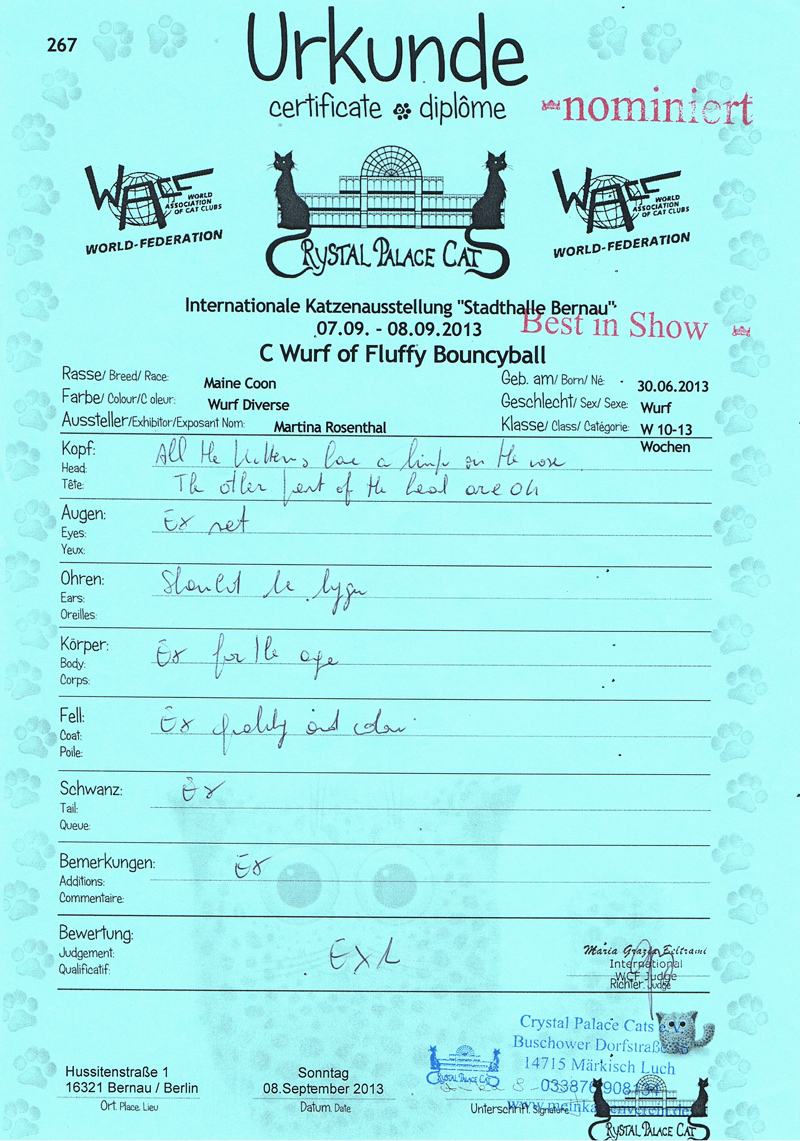 267
Urkunde
certificate diplôme
nominiert
WACC WORLD ASSOCIATION OF CAT CLUBS
WORLD-FEDERATION
CRYSTAL PALACE CATS
WACC WORLD ASSOCIATION OF CAT CLUBS
WORLD-FEDERATION
Internationale Katzenausstellung "Stadthalle Bernau"
07.09. - 08.09.2013
Best in Show
C Wurf of Fluffy Bouncyball
Rasse/ Breed/ Race: Maine Coon Geb. am/ Born/ Né: 30.06.2013
Farbe/ Colour/C oleur: Wurf Diverse Geschlecht/ Sex/ Sexe: Wurf
Aussteller/Exhibitor/Exposant Nom: Martina Rosenthal Klasse/ Class/ Catégorie: W 10-13 Wochen
Kopf: All the kittens have a on the nose
Head:
Tête: The other part of the head are ok
Augen: Ex set
Eyes:
Yeux:
Ohren: Should be
Ears:
Oreilles:
Körper: Ex for the age
Body:
Corps:
Fell: Ex quality and colour
Coat:
Poile:
Schwanz: Ex
Tail:
Queue:
Bemerkungen: Ex
Additions:
Commentaire:
Bewertung:
Judgement: Ex 1
Qualificatif:
Maria Grazia Beltrami
International
WCF Judge
Richter. Judge
Crystal Palace Cats e.V.
Buschower Dorfstraße
14715 Märkisch Luch
033876
www.meinkatzenverein.de
CRYSTAL PALACE CATS
Hussitenstraße 1
16321 Bernau / Berlin
Ort. Place. Lieu
Sonntag
08.September 2013
Datum. Date
Unterschrift. Signature
CRYSTAL PALACE CATS